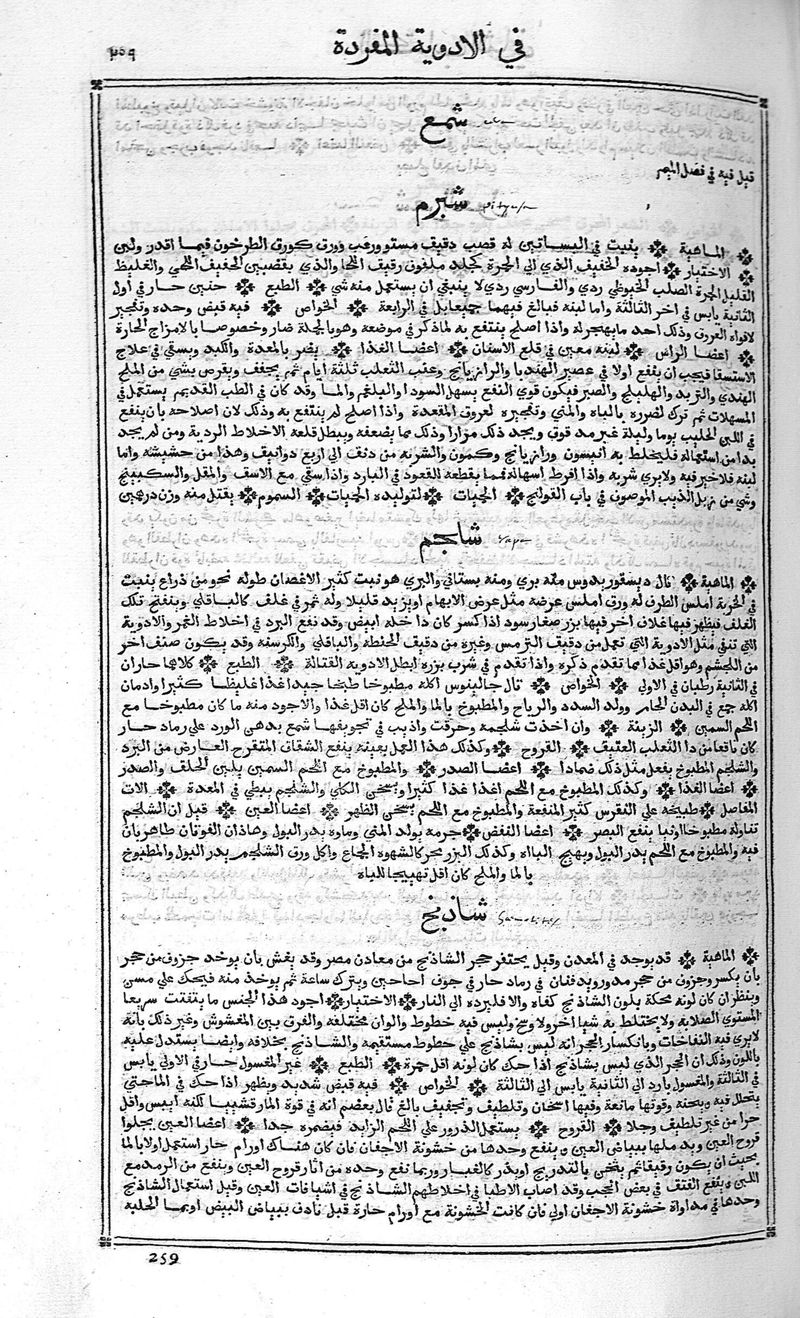 في الادوية المفردة
٢٥٩
شمع
قيل فيه في فصل الميم
شبرم Pityusa
الماهية ينبت في البساتين له قصب دقيق مستو وزغب وورق كورق الطرخون فيما اقدر ولبن
الاختيار اجوده الخفيف الذي الى الحمرة كجلد ملفوف رقيق اللحا والذي بقصبين الخفيف اللحمي والغليظ
القليل الحمرة الصلب الخيوطي ردي والفارسي ردي لا ينبغي ان يستعمل منه شي الطبع حنين حار في اول
الثانية يابس في اخر الثالثة واما لبنه فبالغ فيهما جميعا بل في الرابعة الخواص فيه قبض وحده وتفجير
لافواه العروق وذلك احد ما يهجر له واذا اصلح ينتفع به لما ذكر في موضعه وهو بالجملة ضار وخصوصا بالامزاج الحارة
اعضا الراس لبنه معين في قلع الاسنان اعضا الغذا يضر بالمعدة والكبد ويسقى في علاج
الاستسقا فيجب ان ينقع اولا في عصير الهندبا والرازيانج وعنب الثعلب ثلثة ايام ثم يجفف ويقرص بشي من الملح
الهندي والتربد والهليلج والصبر فيكون قوي النفع يسهل السودا والبلغم والما وقد كان في الطب القديم يستعمل في
المسهلات ثم ترك لضرره بالباه والمني وتفجيره لعروق المقعدة واذا اصلح لم ينتفع به وذلك لان اصلاحه بان ينقع
في اللبن الحليب يوما وليلة غير مدقوق ويجدد ذلك مرارا وذلك مما يضعفه ويبطل قلعه الاخلاط الردية ومن لم يجد
بدا من استعماله فليخلط به انيسون ورازيانج وكمون والشربه من دنف الى اربع دوانيق وهذا من حشيشته واما
لبنه فلا خير فيه ولا يرى شربه واذا افرط اسهاله فمما يقطعه القعود في البارد واذا سقي مع الاسف والمقل والسكبينج
وشي من زبل الذيب الموصوف في باب القولنج الحميات لتوليده الحميات السموم يقتل منه وزن درهمين
شلجم Napo
الماهية قال ديسقوريدوس منه بري ومنه بستاني والبري هو نبت كثير الاغصان طوله نحو من ذراع ينبت
في الحربة املس الطرف له ورق املس عرضه مثل عرض الابهام او يزيد قليلا وله ثمر في غلف كالباقلى وينفتح تلك
الغلف فيظهر فيها غلاف اخر فيها بزر صغار سود اذا كسر كان داخله ابيض وقد نفع البزر في اخلاط الغمر والادوية
التي تنقي مثل الادوية التي تعمل من دقيق الترمس وغيره من دقيق الحنطة والباقلى والكرسنة وقد يكون صنف اخر
من اللجشم وهو اقل غذا مما تقدم ذكره واذا تقدم في شرب بزره ابطل الادويه القتالة الطبع كلاهما حاران
في الثانية رطبان في الاولي الخواص قال جالينوس اكله مطبوخا طبخا جيدا غذا غليظا كثيرا وادمان
اكله جمع في البدن الخام وولد السدد والرياح والمطبوخ بالما والملح كان اقل غذا والاجود منه ما كان مطبوخا مع
اللحم السمين الزينة وان اخذت شلجمة وحرقت واذيب في تجويفها شمع بدهن الورد علي رماد حار
كان نافعا من دا الثعلب العتيق القروح وكذلك هذا العمل بعينه ينفع الشقاق المتقرح العارض من البرد
والشلجم المطبوخ يفعل مثل ذلك ضمادا اعضا الصدر والمطبوخ مع اللحم السمين يلين الحلق والصدر
اعضا الغذا وكذلك المطبوخ مع اللحم اغذا غذا كثيرا ويسخن الكلي والشلجم يبطي في المعدة الات
المفاصل طبيخه علي النقرس كثير المنفعة والمطبوخ مع اللحم يسخن الظهر اعضا العين قيل ان الشلجم
تناوله مطبوخا اونيا ينفع البصر اعضا النفض جرمه يولد المني وماوه يدر البول وهاذان القوتان ظاهرتان
فيه والمطبوخ مع اللحم يدر البول ويهيج الباه وكذلك البزر محركا لشهوة الجماع واكل ورق الشلجم يدر البول والمطبوخ
بالما والملح كان اقل تهييجا للباه
شاذنج
الماهية قد يوجد في المعدن وقيل يحتفر حجر الشاذنج من معادن مصر وقد يغش بان يوخد جزو من حجر
بان يكسر وجزو من حجر مدور ويدفنان في رماد حار في جوف اجاجين ويترك ساعة ثم يوخذ منه فيحك علي مسن
وينظر ان كان لونه محكة بلون الشاذنج كفاه والا فليرده الى النار الاختيار اجود هذا الجنس ما يتفتت سريعا
المستوي الصلابه ولا يختلط به شيا اخر ولا وسخ وليس فيه خطوط والوان مختلفه والفرق بين المغشوش وغير ذلك بانه
لايرى فيه النفاخات وبانكسار الحجر انه ليس بشاذنج علي خطوط مستقيمه والشاذنج بخلافه وايضا يستدل عليه
باللون وذلك ان الحجر الذي ليس بشاذنج اذا حك كان لونه اقل حمرة الطبع غير المغسول حار في الاولي يابس
في الثالثة والمغسول بارد الى الثانية يابس الى الثالثة الخواص فيه قبض شديد ويظهر اذا حك في الما حتي
يتحلل فيه ويثخنه وقوتها مانعة وفيها اسخان وتلطيف وتجفيف بالغ قال بعضهم انه في قوة المارقشيبا لكنه ايبس واقل
حرا من غير تلطيف وجلا القروح يستعمل الذرور علي اللحم الزايد فيضمره جدا اعضا العين يجلوا
قروح العين ويدملها ببياض العين وينفع وحدها من خشونة الاجفان فان كان هناك اورام حار استعمل اولا بالما
بحيث ان يكون رقيقا ثم يثخن بالتدريج او يدر كالغبار وربما نفع وحده من اثار قروح العين وينفع من الرمد مع
اللبن وينفع الفتق في بعض الحجب وقد اصاب الاطبا في اخلاطهم الشاذنج في اشيافات العين وقيل استعمال الشاذنج
وحدها في مداواة خشونة الاجفان اولى فان كانت الخشونة مع اورام حارة قيل نادف ببياض البيض او بما الحلبه
259